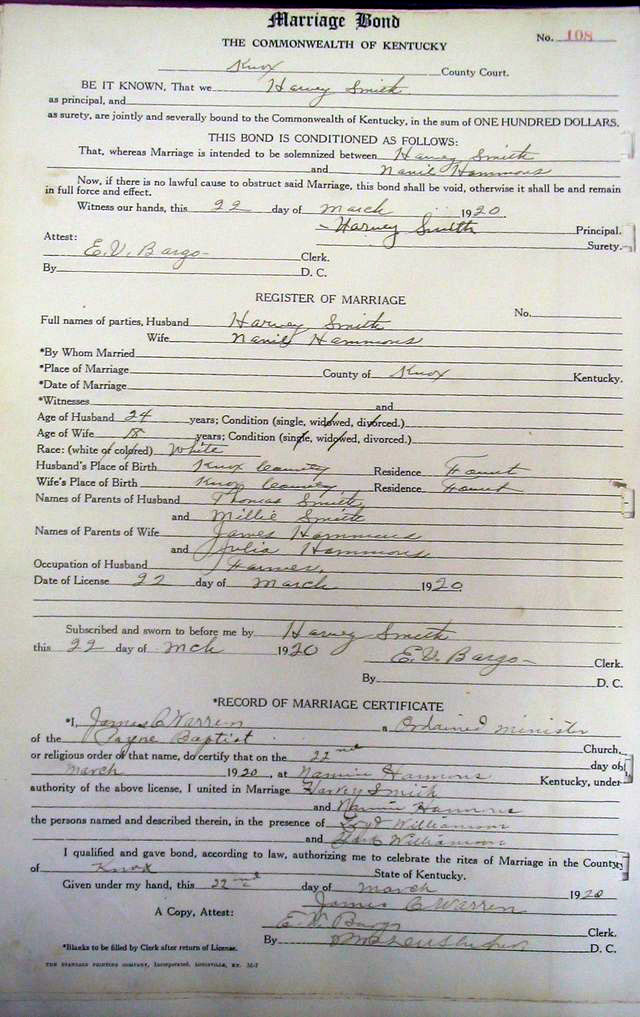 Marriage Bond
No. 108
THE COMMONWEALTH OF KENTUCKY
Knox County Court.
BE IT KNOWN, That we Harvey Smith
as principal, and
as surety, are jointly and severally bound to the Commonwealth of Kentucky, in the sum of ONE HUNDRED DOLLARS.
THIS BOND IS CONDITIONED AS FOLLOWS:
That, whereas Marriage is intended to be solemnized between Harvey Smith
and Hammons
Now, if there is no lawful cause to obstruct said Marriage, this bond shall be void, otherwise it shall be and remain
in full force and effect.
Witness our hands, this 22 day of March 1920
Harvey Smith Principal.
Attest: Surety.
E.V. Bargo Clerk.
By D. C.
REGISTER OF MARRIAGE
No.
Full names of parties, Husband Harvey Smith
Wife Hammons
*By Whom Married
*Place of Marriage County of Knox Kentucky.
*Date of Marriage
*Witnesses and
Age of Husband 24 years; Condition (single, widowed, divorced.)
Age of Wife 18 years; Condition (single, widowed, divorced.)
Race: (white or colored) White
Husband's Place of Birth Knox County Residence
Wife's Place of Birth Knox County Residence
Names of Parents of Husband Thomas Smith,
and Millie Smith
Names of Parents of Wife James Hammons
and Julia Hammons
Occupation of Husband Farmer,
Date of License 22 day of March 1920
Subscribed and sworn to before me by Harvey Smith
this 22 day of Mch 1920
E.V. Bargo Clerk.
By D. C.
*RECORD OF MARRIAGE CERTIFICATE
*I, James C Warren a Ordained minister
of the Payne Baptist Church,
or religious order of that name, do certify that on the 22nd day of
March 1920, at Hammons Kentucky, under
authority of the above license, I united in Marriage Harvey Smith
and
the persons named and described therein, in the presence of Williamson
and Williamson
I qualified and gave bond, according to law, authorizing me to celebrate the rites of Marriage in the County
of Knox State of Kentucky.
Given under my hand, this 22nd day of March 1920
James C Warren
A Copy, Attest: E.V. Bargo Clerk.
By D. C.
*Blanks to be filled by Clerk after return of License.
THE STANDARD PRINTING COMPANY, Incorporated, LOUISVILLE, KY.